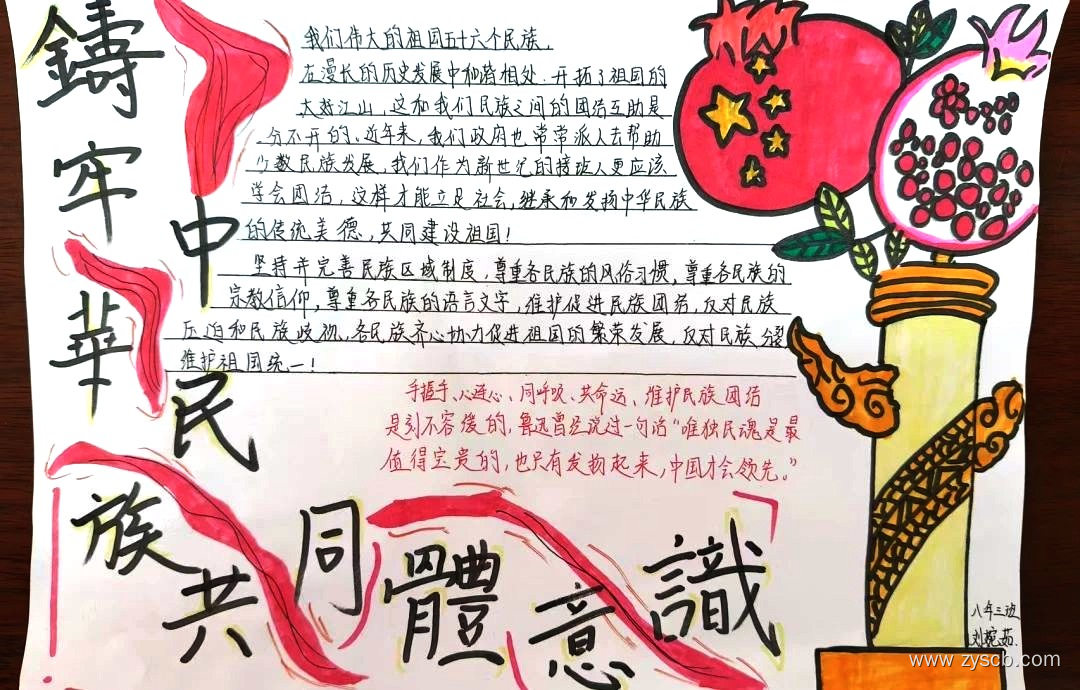 鑄牢
中
華
民
族
共
同體意識
我们伟大的祖国五十六个民族,
在漫长的历史发展中和谐相处.开拓了祖国的
大好江山,这和我们民族之间的团结互助是
分不开的。近年来,我们政府也常常派人去帮助
少数民族发展,我们作为新世纪的接班人更应该
学会团结,这样才能立足社会,继承和发扬中华民族
的传统美德,共同建设祖国!
坚持并完善民族区域制度,尊重各民族的风俗习惯,尊重各民族的
宗教信仰,尊重各民族的语言文字,维护促进民族团结,反对民族
压迫和民族歧视,各民族齐心协力促进祖国的繁荣发展,反对民族分裂
维护祖国统一!
手握手、心连心、同呼吸、共命运、维护民族团结
是刻不容缓的,鲁迅曾经说过一句话“唯独民魂是最
值得宝贵的,也只有发扬起来,中国才会领先。”
八年三班
刘婉茹
www.zyscb.com